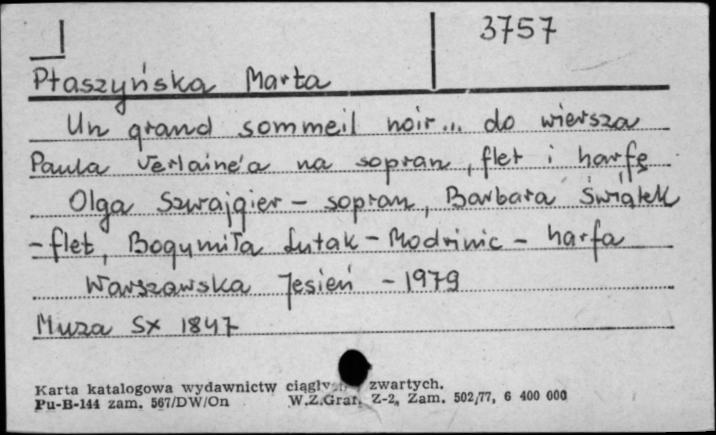 3757
Ptaszyńska Marta
Un grand sommeil noir... do wiersza
Paula Verlaine'a na sopran, flet i harfę
Olga Szwajgier – sopran, Barbara Świątek
– flet, Bogumiła Lutak-Modrinic – harfa
Warszawska Jesień – 1979
Muza SX 1847
Karta katalogowa wydawnictw zwartych.
Pu-B-144 zam. 567/DW/On W.Z.Graf. Z-2, Zam. 502/77, 6 400 000